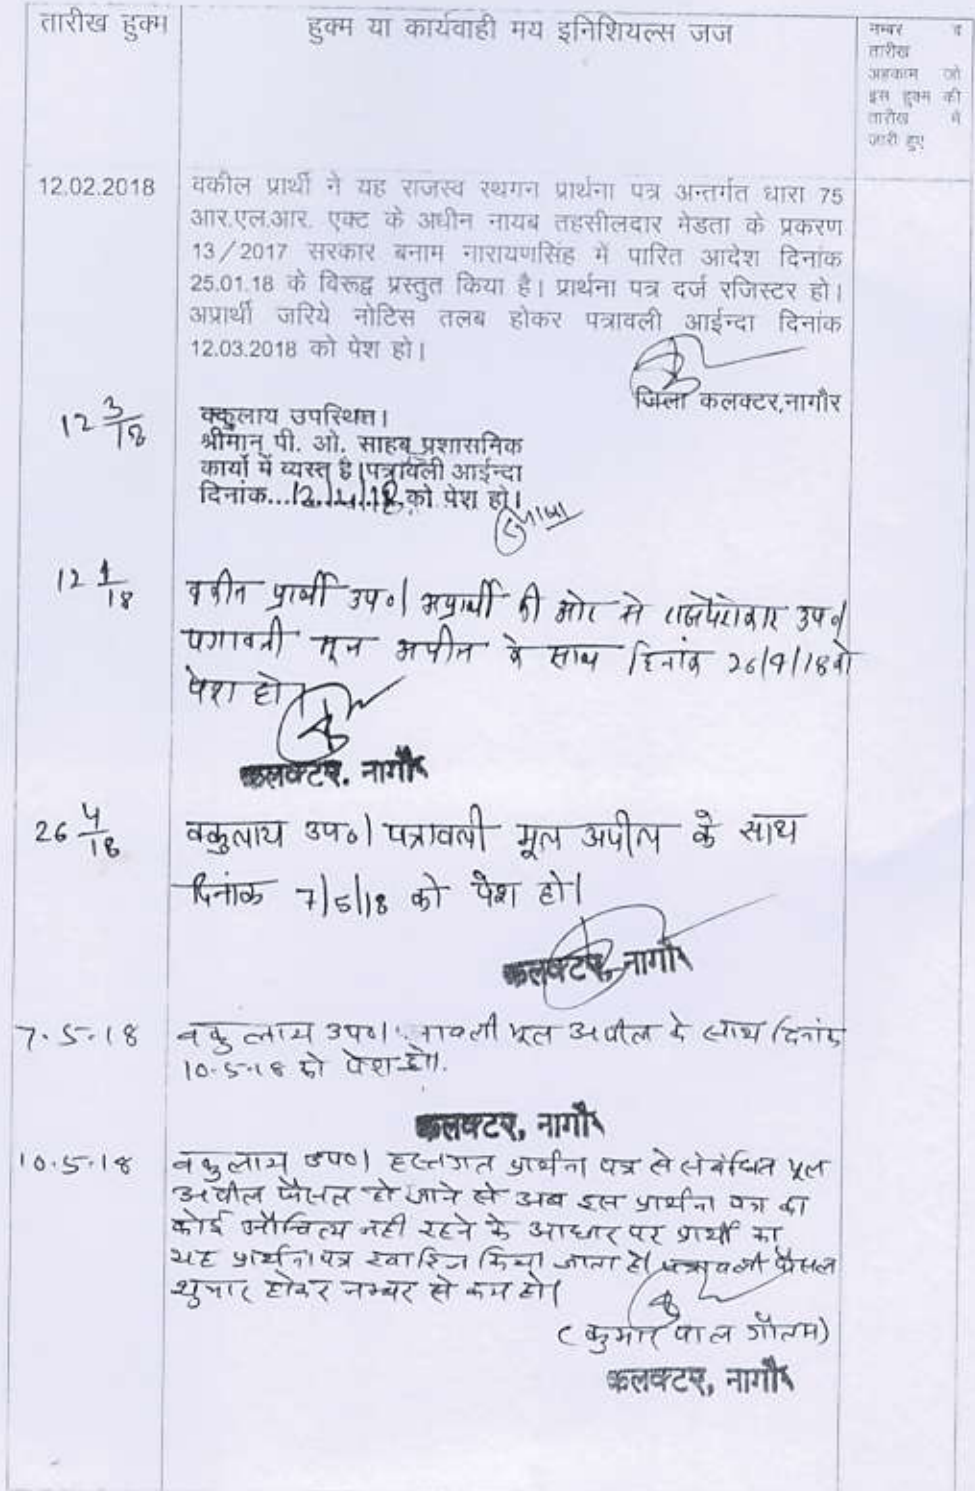 तारीख हुक्म
हुक्म या कार्यवाही मय इनिशियल्स जज
नम्बर व
तारीख
अहकाम जो
इस हुक्म की
तारीख में
जारी हुए
12.02.2018
वकील प्रार्थी ने यह राजस्व स्थगन प्रार्थना पत्र अन्तर्गत धारा 75
आर.एल.आर. एक्ट के अधीन नायब तहसीलदार मेडता के प्रकरण
13/2017 सरकार बनाम नारायणसिंह में पारित आदेश दिनांक
25.01.18 के विरूद्व प्रस्तुत किया है। प्रार्थना पत्र दर्ज रजिस्टर हो।
अप्रार्थी जरिये नोटिस तलब होकर पत्रावली आईन्दा दिनांक
12.03.2018 को पेश हो।
जिला कलक्टर,नागौर
12 3/18
वकुलाय उपस्थित।
श्रीमान् पी. ओ. साहब प्रशासनिक
कार्यो में व्यस्त है। पत्रावली आईन्दा
दिनांक...12/4/18 को पेश हो।
12 4/18
वकील प्रार्थी उप०। अप्रार्थी की ओर से राजपेरोकार उप०।
पत्रावली मूल अपील के साथ दिनांक 26/4/18 को
पेश हो।
कलक्टर, नागौर
26 4/18
वकुलाय उप०। पत्रावली मूल अपील के साथ
दिनांक 7/5/18 को पेश हो।
कलक्टर, नागौर
7.5.18
वकुलाय उप०। पत्रावली मूल अपील के साथ दिनांक
10.5.18 को पेश हो।
कलक्टर, नागौर
10.5.18
वकुलाय उप०। हस्तगत प्रार्थना पत्र से संबंधित मूल
अपील फैसल हो जाने से अब इस प्रार्थना पत्र का
कोई औचित्य नही रहने के आधार पर प्रार्थी का
यह प्रार्थना पत्र खारिज किया जाता है। पत्रावली फैसल
शुमार होकर नम्बर से कम हो।
(कुमार पाल गौतम)
कलक्टर, नागौर